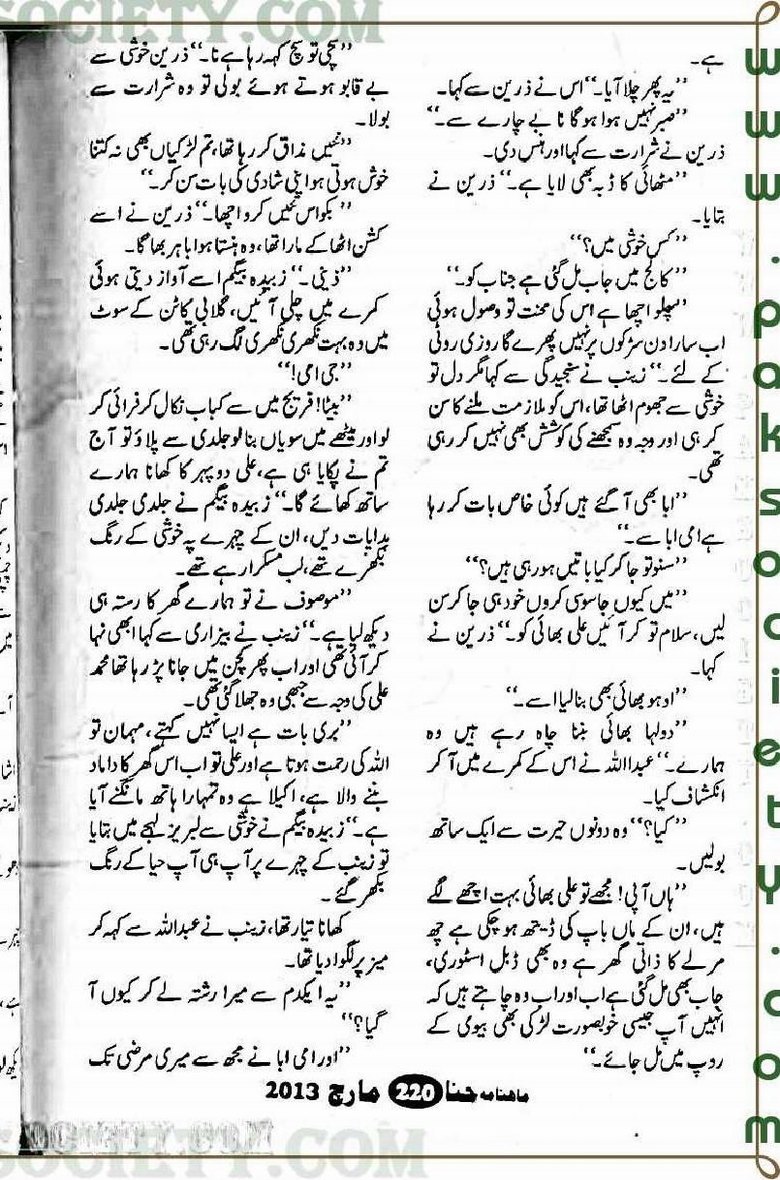 SOCIETY.COM
ہے۔
”یہ پھر چلا آیا۔“ اس نے ذرین سے کہا۔
”صبر نہیں ہوا ہو گا نا بے چارے سے۔“
ذرین نے شرارت سے کہا اور ہنس دی۔
”مٹھائی کا ڈبہ بھی لایا ہے۔“ ذرین نے
بتایا۔
”کس خوشی میں؟“
”کالج میں جاب مل گئی ہے جناب کو۔“
”چلو اچھا ہے اس کی محنت تو وصول ہوئی
اب سارا دن سڑکوں پر نہیں پھرے گا روزی روٹی
کے لئے۔“ زینب نے سنجیدگی سے کہا مگر دل تو
خوشی سے جھوم اٹھا تھا، اس کو ملازمت ملنے کا سن
کر ہی اور وجہ وہ سمجھنے کی کوشش بھی نہیں کر رہی
تھی۔
”ابا بھی آ گئے ہیں کوئی خاص بات کر رہا
ہے امی ابا سے۔“
”سنو تو جا کر کیا باتیں ہو رہی ہیں؟“
”میں کیوں جاسوسی کروں خود ہی جا کر سن
لیں، سلام تو کر آئیں علی بھائی کو۔“ ذرین نے
کہا۔
”اوہو بھائی بھی بنا لیا اسے۔“
”دولہا بھائی بننا چاہ رہے ہیں وہ
ہمارے۔“ عبداللہ نے اس کے کمرے میں آ کر
انکشاف کیا۔
”کیا؟“ وہ دونوں حیرت سے ایک ساتھ
بولیں۔
”ہاں آپی! مجھے تو علی بھائی بہت اچھے لگے
ہیں، ان کے ماں باپ کی ڈیتھ ہو چکی ہے چھ
مرلے کا ذاتی گھر ہے وہ بھی ڈبل اسٹوری،
جاب بھی مل گئی ہے اب اور اب وہ چاہتے ہیں کہ
انہیں آپ جیسی خوبصورت لڑکی بھی بیوی کے
روپ میں مل جائے۔“
”سچی تو سچ کہہ رہا ہے نا۔“ ذرین خوشی سے
بے قابو ہوتے ہوئے بولی تو وہ شرارت سے
بولا۔
”نہیں مذاق کر رہا تھا، تم لڑکیاں بھی نہ کتنا
خوش ہوتی ہو اپنی شادی کی بات سن کر۔“
”بکواس نہیں کرو اچھا۔“ ذرین نے اسے
کشن اٹھا کے مارا تھا، وہ ہنستا ہوا باہر بھاگا۔
”ذینی۔“ زبیدہ بیگم اسے آواز دیتی ہوئی
کمرے میں چلی آئیں، گلابی کاٹن کے سوٹ
میں وہ بہت نکھری نکھری لگ رہی تھی۔
”جی امی!“
”بیٹا! فریج میں سے کباب نکال کر فرائی کر
لو اور میٹھے میں سویاں بنا لو جلدی سے پلاؤ تو آج
تم نے پکایا ہی ہے، علی دوپہر کا کھانا ہمارے
ساتھ کھائے گا۔“ زبیدہ بیگم نے جلدی جلدی
ہدایات دیں، ان کے چہرے پہ خوشی کے رنگ
بکھرے تھے، لب مسکرا رہے تھے۔
”موصوف نے تو ہمارے گھر کا رستہ ہی
دیکھ لیا ہے۔“ زینب نے بیزاری سے کہا ابھی نہا
کر آئی تھی اور اب پھر کچن میں جانا پڑ رہا تھا محمد
علی کی وجہ سے جبھی وہ جھلا گئی تھی۔
”بری بات ہے ایسا نہیں کہتے، مہمان تو
اللہ کی رحمت ہوتا ہے اور علی تو اب اس گھر کا داماد
بننے والا ہے، اکیلا ہے وہ تمہارا ہاتھ مانگنے آیا
ہے۔“ زبیدہ بیگم نے خوشی سے لبریز لہجے میں بتایا
تو زینب کے چہرے پر آپ ہی آپ حیا کے رنگ
بکھر گئے۔
کھانا تیار تھا، زینب نے عبداللہ سے کہہ کر
میز پر لگوا دیا تھا۔
”یہ ایکدم سے میرا رشتہ لے کر کیوں آ
گیا؟“
”اور امی ابا نے مجھ سے میری مرضی تک
ماهنامه حنا 220 مارچ 2013
www.paksociety.com
SOCIETY.COM